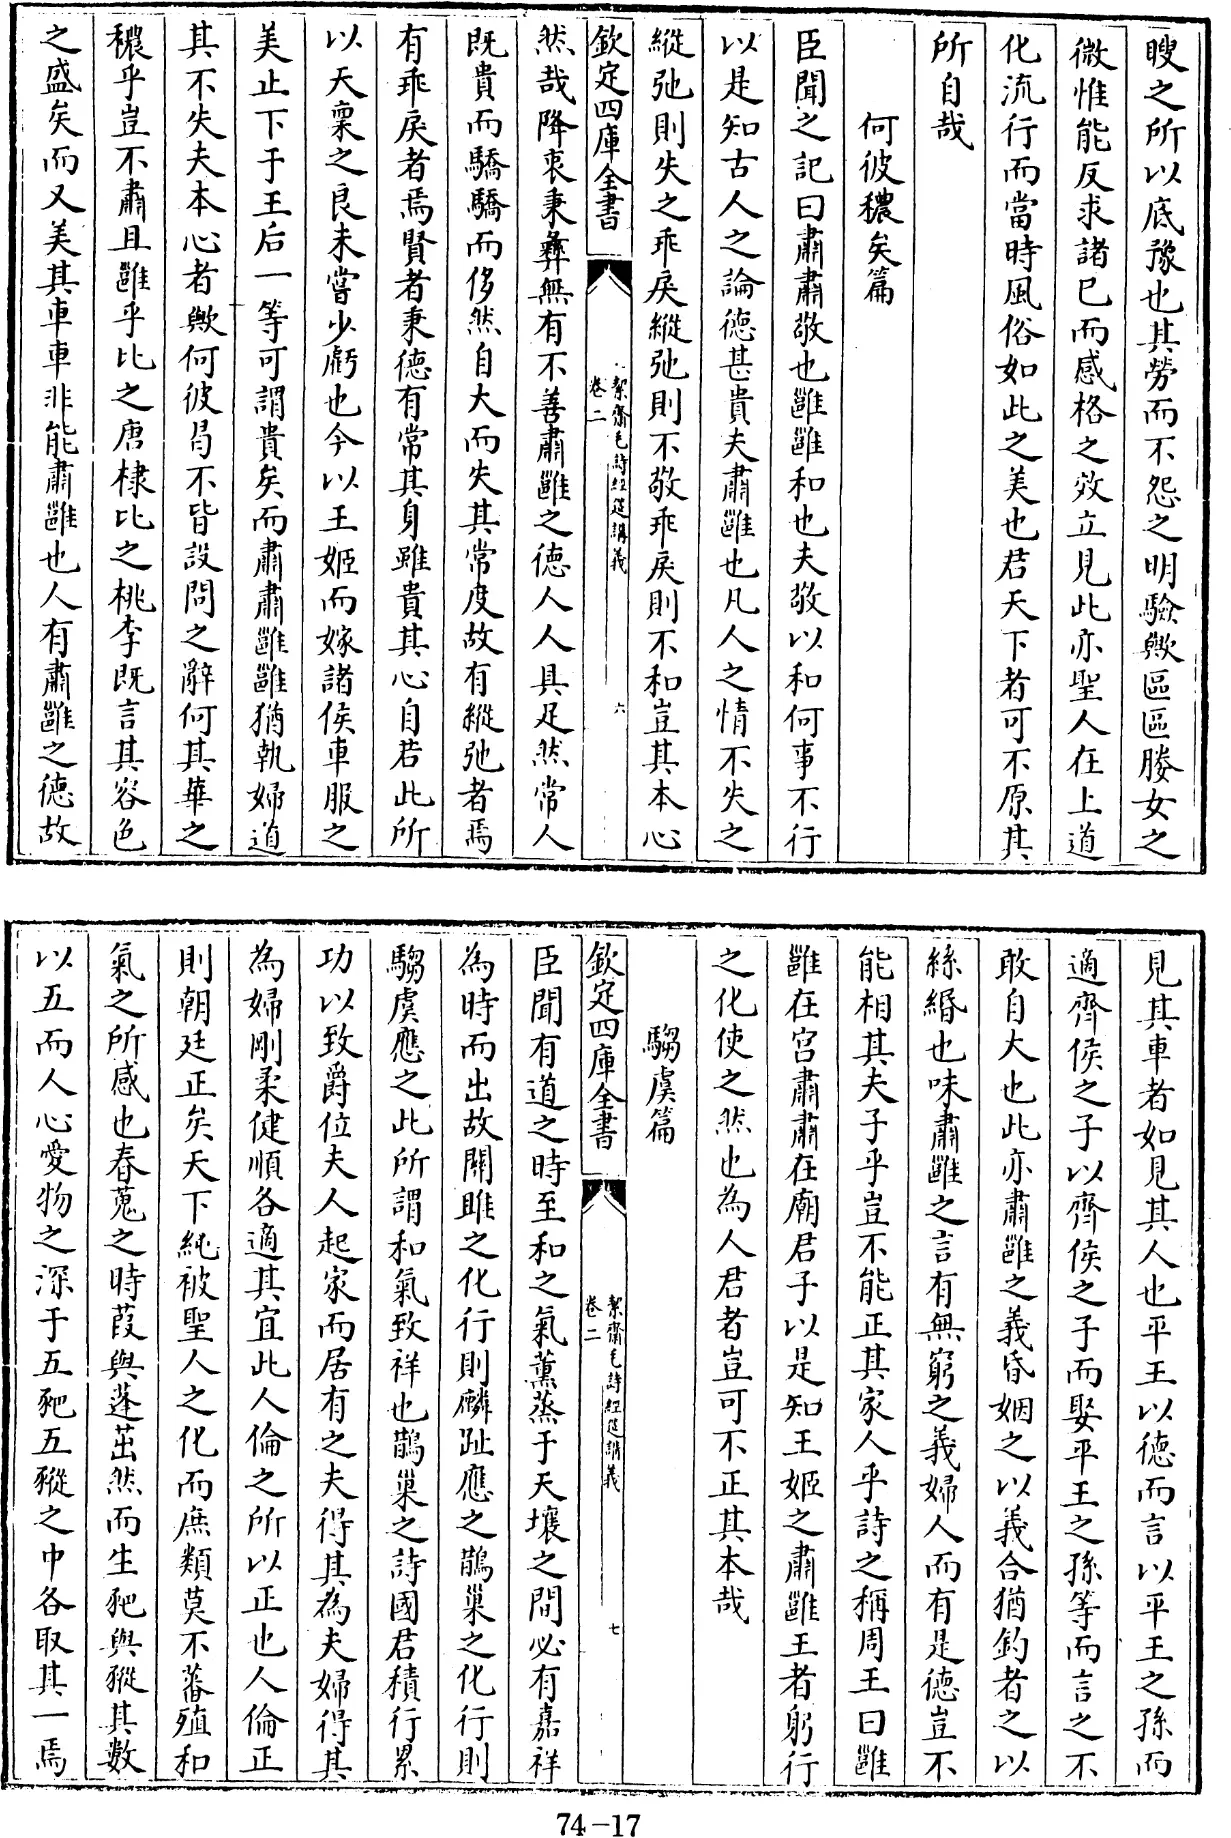 瞍之所以底豫也其勞而不怨之明驗歟區區媵女之
微惟能反求諸已而感格之效立見此亦聖人在上道
化流行而當時風俗如此之美也君天下者可不原其
所自哉
何彼穠矣篇
臣聞之記曰肅肅敬也雝雝和也夫敬以和何事不行
以是知古人之論德甚貴夫肅雝也凡人之情不失之
縱弛則失之乖戾縱弛則不敬乖戾則不和豈其本心
欽定四庫全書
絜齋毛詩經筵講義
卷二
六
然哉降衷秉彝無有不善肅雝之德人人具足然常人
既貴而驕驕而侈然自大而失其常度故有縱弛者焉
有乖戾者焉賢者秉德有常其身雖貴其心自若此所
以天稟之良未嘗少虧也今以王姬而嫁諸侯車服之
美止下于王后一等可謂貴矣而肅肅雝雝猶執婦道
其不失夫本心者歟何彼曷不皆設問之辭何其華之
穠乎豈不肅且雝乎比之唐棣比之桃李既言其容色
之盛矣而又美其車車非能肅雝也人有肅雝之德故
見其車者如見其人也平王以德而言以平王之孫而
適齊侯之子以齊侯之子而娶平王之孫等而言之不
敢自大也此亦肅雝之義昏姻之以義合猶釣者之以
絲緡也味肅雝之言有無窮之義婦人而有是德豈不
能相其夫子乎豈不能正其家人乎詩之稱周王曰雝
雝在宮肅肅在廟君子以是知王姬之肅雝王者躬行
之化使之然也為人君者豈可不正其本哉
騶虞篇
欽定四庫全書
絜齋毛詩經筵講義
卷二
七
臣聞有道之時至和之氣薰蒸于天壤之間必有嘉祥
為時而出故關雎之化行則麟趾應之鵲巢之化行則
騶虞應之此所謂和氣致祥也鵲巢之詩國君積行累
功以致爵位夫人起家而居有之夫得其為夫婦得其
為婦剛柔健順各適其宜此人倫之所以正也人倫正
則朝廷正矣天下純被聖人之化而庶類莫不蕃殖和
氣之所感也春蒐之時葭與蓬茁然而生豝與豵其數
以五而人心愛物之深于五豝五豵之中各取其一焉
74-17